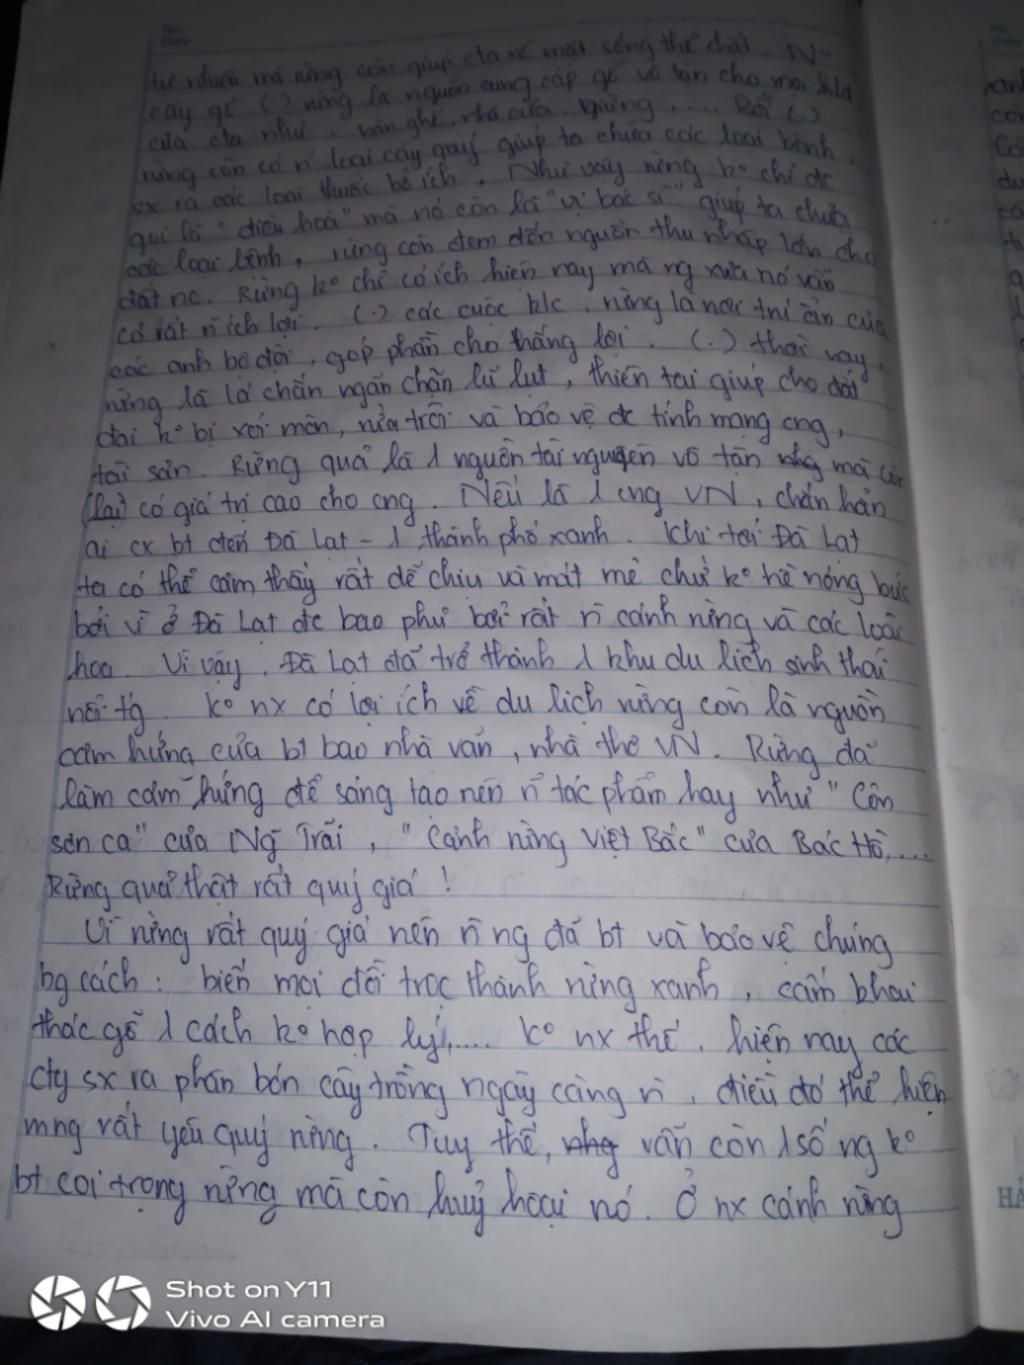 tự nhiên mà rừng còn giúp cta về mặt sống thể chất. N~
cây gỗ (.) rừng là nguồn cung cấp gỗ vô tận cho mọi
của cta như, bàn ghế, nhà cửa, giường, .... Rồi (.)
rừng còn có n~ loại cây quý giúp ta chữa các loại bệnh,
sx ra các loại thuốc bổ ích. Như vậy rừng ko chỉ đc
gọi là "điều hoà" mà nó còn là "vị bác sĩ" giúp ta chữa
các loại bệnh, rừng còn đem đến nguồn thu nhập lớn cho
đất nc. Rừng ko chỉ có ích hiện nay mà ng xưa nó vẫn
có rất n~ ích lợi. (.) các cuộc k/c, rừng là nơi trú ẩn của
các anh bộ đội, góp phần cho thắng lợi. (.) thời nay,
rừng là lá chắn ngăn chặn lũ lụt, thiên tai giúp cho đất
đai ko bị xói mòn, rửa trôi và bảo vệ đc tính mạng cng,
tài sản. Rừng quả là 1 nguồn tài nguyên vô tận mà còn
(lại) có giá trị cao cho cng. Nếu là 1 cng VN, chắn hẳn
ai cx bt đến Đà Lạt - 1 thành phố xanh. Khi tới Đà Lạt
ta có thể cảm thấy rất dễ chịu và mát mẻ chứ ko hề nóng bức
bởi vì ở Đà Lạt đc bao phủ bởi rất n~ cánh rừng và các loài
hoa. Vì vậy, Đà Lạt đã trở thành 1 khu du lịch sinh thái
nổi tg. ko nx có lợi ích về du lịch rừng còn là nguồn
cảm hứng của bt bao nhà văn, nhà thơ VN. Rừng đã
làm cảm hứng để sáng tạo nên n~ tác phẩm hay như "Côn
sơn ca" của Ng~ Trãi, "Cảnh rừng Việt Bắc" của Bác Hồ,....
Rừng quả thật rất quý giá!
Vì rừng rất quý giá nên n~ ng đã bt và bảo vệ chúng
bg cách: biến mọi đồi trọc thành rừng xanh, cấm khai
thác gỗ 1 cách ko hợp lý,.... ko nx thế, hiện nay các
cty sx ra phân bón cây trồng ngày càng n~, điều đó thể hiện
mng rất yêu quý rừng. Tuy thế, nhg vẫn còn 1 số ng ko
bt coi trọng rừng mà còn huỷ hoại nó. Ở nx cánh rừng
HẢ
Shot on Y11
Vivo AI camera